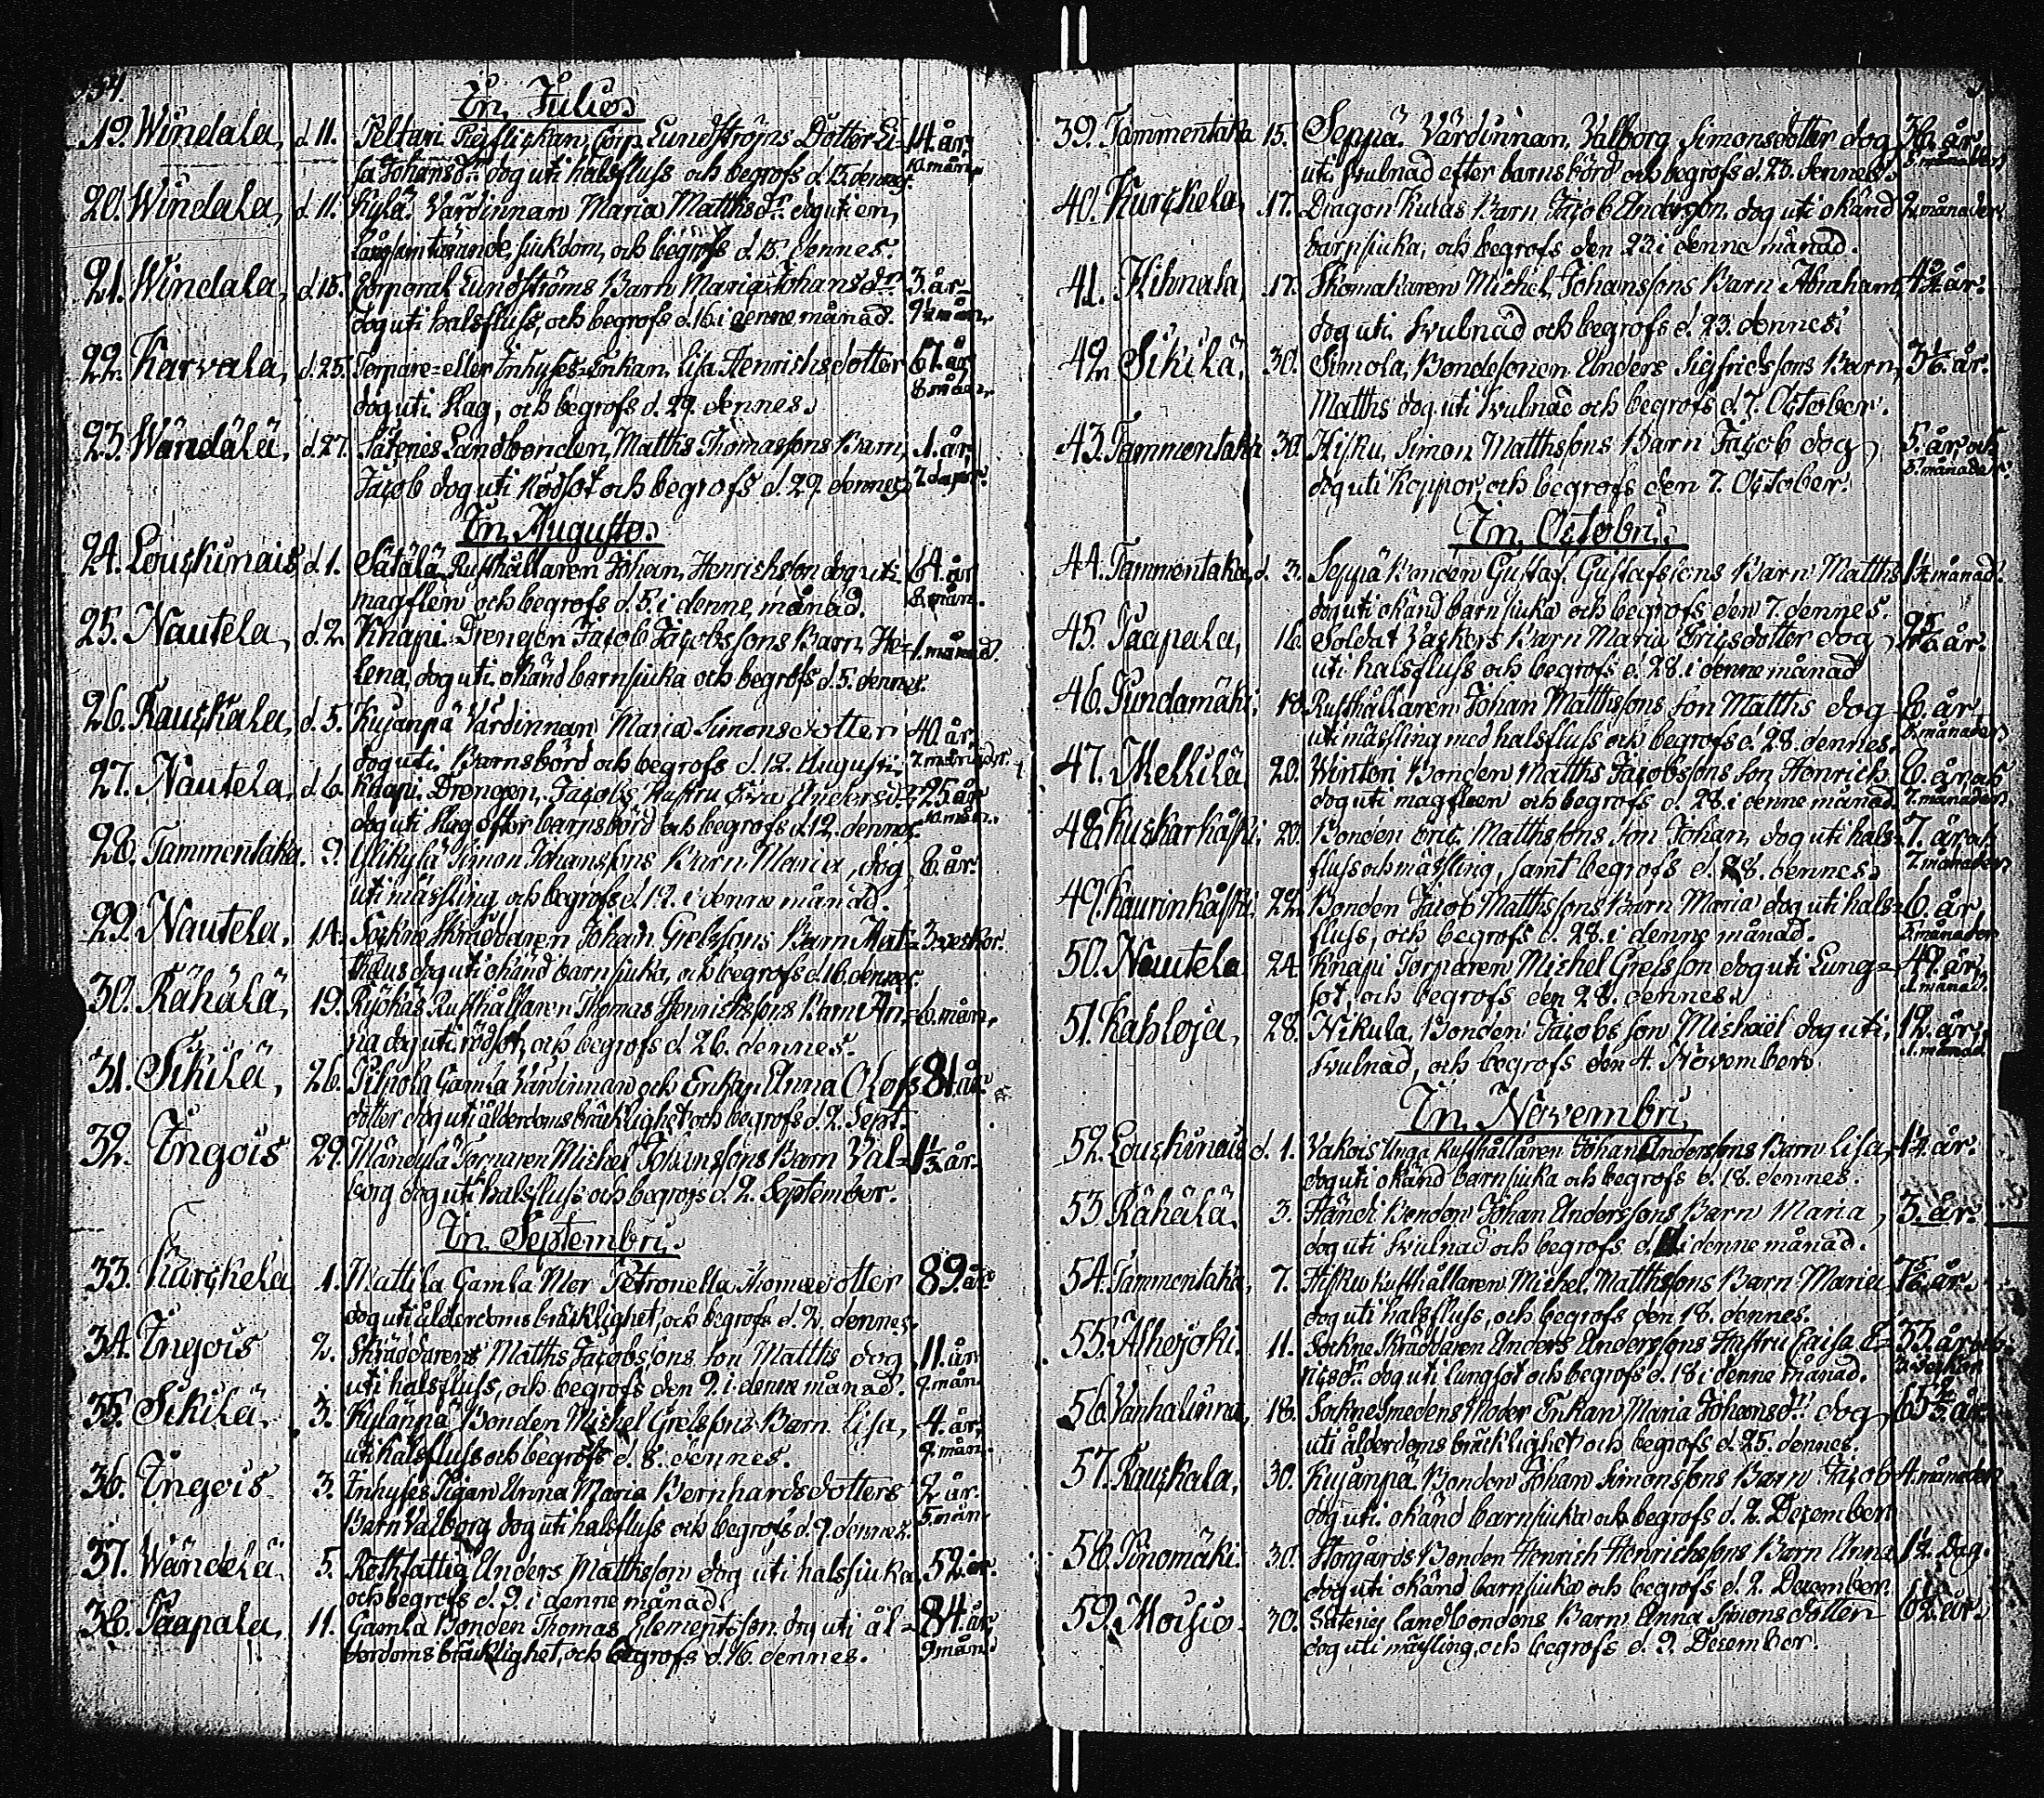 In Julio
19. Windala, d. 11. Peltari Pijflickan, Corp. Lundströms Dotter Li- 14. år
sa Johansdr dog uti halsfluss och begrofs d. 15. dennes. 10. mån.
20. Windala, d. 11. Kylä Värdinnan Maria Matthsdr. dog uti en
långsam tärande sjukdom, och begrofs d. 15. dennes.
21. Windala, d. 15. Corporal Lundströms Barn Maria Johansdr 3. år
dog uti halsfluss, och begrofs d. 16. i denne månad. 9½ mån.
22. Karvala, d. 25. Torpare= eller Inhyses=Enkan, Lisa Henrichsdotter 67. år
dog uti Hag, och begrofs d. 29. dennes. 8 mån.
23. Wändälä, d. 27. Säteries Landbonden, Matths Thomassons Barn, 1. år
Jacob dog uti Rödsot och begrofs d. 29. dennes 7. dagar.
In Augusto.
24. Louckinais d. 1. Sätälä Rusthållaren Johan Henrichsson dog uti 64. år
magflen och begrofs d. 5. i denne månad. 8 mån.
25. Nautela, d. 2 Knapi Drengen Jacob Jacobssons Barn He- 1. månad.
lena, dog uti okänd barnsjuka och begrofs d. 5. dennes.
26. Rauckala, d. 5. Kujanpä Värdinnan Maria Simonsdotter 40. år
dog uti Barnsbörd och begrofs d. 12. Augusti. 7. månader.
27. Nautela, d. 6. Knapi Drengen, Jacobs Hustru Eva Andersdr 25. år
dog uti Hag efter barnsbörd och begrofs d. 12. dennes. 10. mån.
28. Tammentaka. 9. Ylikylä Simon Johanssons Barn Maria, dog 6. år.
uti mässling och begrofs d. 12. i denne månad.
29. Nautela. 14. Sockne Skräddaren Johan Grelssons Barn Mat- 3. veckor.
thæus dog uti okänd barnsjuka, och begrofs d. 16. dennes.
30. Rähälä, 19. Rusthållaren Thomas Henrichssons Barn An- 6. mån.
na dog uti rödsot, och begrofs d. 26. dennes.
31. Sikilä, 26. Pilkola Gamla Värdinnan och Enkan Anna Olofs 81. år.
dotter dog uti ålderdoms bräcklighet och begrofs d. 2. Sept.
32. Ingois 29. Torparen Michel Johanssons Barn Val- 1⅓ år.
borg dog uti halsfluss och begrofs d. 2. September.
In Septembri.
33. Kurckela 1. Mattila Gamla Mor Petronella Thomædotter 89. år.
dog uti ålderdoms bräcklighet, och begrofs d. 2. dennes.
34. Ingois 2. Skräddarens Matths Jacobssons Son Matths dog 11. år
uti halsfluss, och begrofs den 9. i denne månad. 9. mån.
35. Sikilä. 3. Kylänpä Bonden Michel Grelssons Barn Lisa, 4. år,
uti halsfluss och begrofs d. 8. dennes. 9. mån.
36. Ingois 3. Inhyses Pigan Anna Maria Bernhardsdotters 2 år.
Barn Valborg dog uti halsfluss och begrofs d. 9. dennes. 5. mån.
37. Wändelä 5. Rothfattig Anders Matthsson dog uti halssjuka 52. år.
och begrofs d. 9. i denne månad.
38. Paapala, 11. Gamla Bonden Thomas Clementsson dog uti ål- 84. år,
derdoms bräcklighet, och begrofs d. 16. dennes. 9 mån.
39. Tammentaka 15. Seppä Värdinnan Valborg Simonsdotter dog 36. år
uti svulnad efter barnsbörd och begrofs d. 23. dennes. 5. månader
40. Kurckela, 17. Dragon Kulas Barn Jacob Andersson dog uti okänd 2. månader
barnsjuka, och begrofs den 23 i denne månad.
41. Hihnala, 17. Skomakaren Michel Johanssons Barn Abraham, år.
dog uti Svulnad och begrofs d. 23. dennes.
42. Sikilä, 30. Simola, Bondesonen Anders Sigfridssons Barn, 3⅙ år.
Matths dog uti Svulnad och begrofs d. 7. October.
43. Tammentaka 30. Hisku, Simon Matthssons Barn Jacob dog 5. år, och
dog uti Koppor, och begrofs den 7. October. 5. månader.
In Octobri.
44. Tammentaka, d. 3. Seppä Bonden Gustaf Gustafssons Barn Matths månad.
dog uti okänd barnsjuka och begrofs den 7. dennes.
45. Paapala, 16. Soldat Vackers Barn Maria Ericsdotter dog år.
uti halsfluss och begrofs d. 28. i denne månad
46. Pundamäki, 18. Rusthållaren Johan Matthssons Son Matths dog 8. år
uti mässling med halsfluss och begrofs d. 28. dennes. månader
47. Mellilä 20. Winteri Bonden Matths Jacobssons Son Henrich 8. år, och
dog uti magfleen och begrofs d. 28. i denne månad. 7. månader
48. Kuskarkåski, 20. Bonden Eric Matthssons Son Johan, dog uti hals- 7. år och
fluss och mässling, samt begrofs d. 28. dennes. 7. månader
49. Kaurinkåski, 22. Bonden Jacob Matthssons Barn Maria dog uti hals- 6. år
fluss, och begrofs d. 28. i denne månad. 3. månader
50. Nautela 24. Knapi Torparen Michel Grelsson dog uti Lung- 49. år
sot, och begrofs den 28. dennes. 1. månad.
51. Kahloja, 28. Nikula, Bonden Jacobs Son Michaël dog uti 12. år,
Svulnad, och begrofs den 4. November. 1. månad
In Novembri,
52. Louckinais d. 1. Vakois Unga Rusthållaren Johan Anderssons Barn Lisa, 1½ år.
dog uti okänd barnsjuka och begrofs d. 18. dennes.
53 Rähälä. 3. Händi Bonden Johan Anderssons Barn Maria, 3. år.
dog uti Svulnad och begrofs d. i denne månad.
54. Tammentaka, 7. Hisku Rusthållaren Michel Matthssons Barn Maria år.
dog uti halsfluss, och begrofs den 18. dennes.
55. Alhejoki. 11. Sockne Skräddaren Anders Anderssons Hustru Caisa E- 33. år och
ricsdr. dog uti lungsot och begrofs d. 18 i denne månad. veckor
56. Vanhalinna, 18. Sockne Smedens Moder Enkan Maria Johansdr dog 65 år
uti ålderdoms bräcklighet och begrofs d. 25. dennes.
57. Rauckala, 30. Kujanpä Bonden Johan Simonssons Barn Jacob 4. månader
dog uti okänd barnsjuka och begrofs d. 2. December
58. Pinomäki. 30. Storgårds Bonden Henrich Henrichssons Barn Anna 1½ dag.
dog uti okänd barnsjuka och begrofs d. 2. December.
59. Moisio. 30. Säteries landbondens Barn Anna Simonsdotter 6½ år.
dog uti mässling, och begrofs d. 9. December.